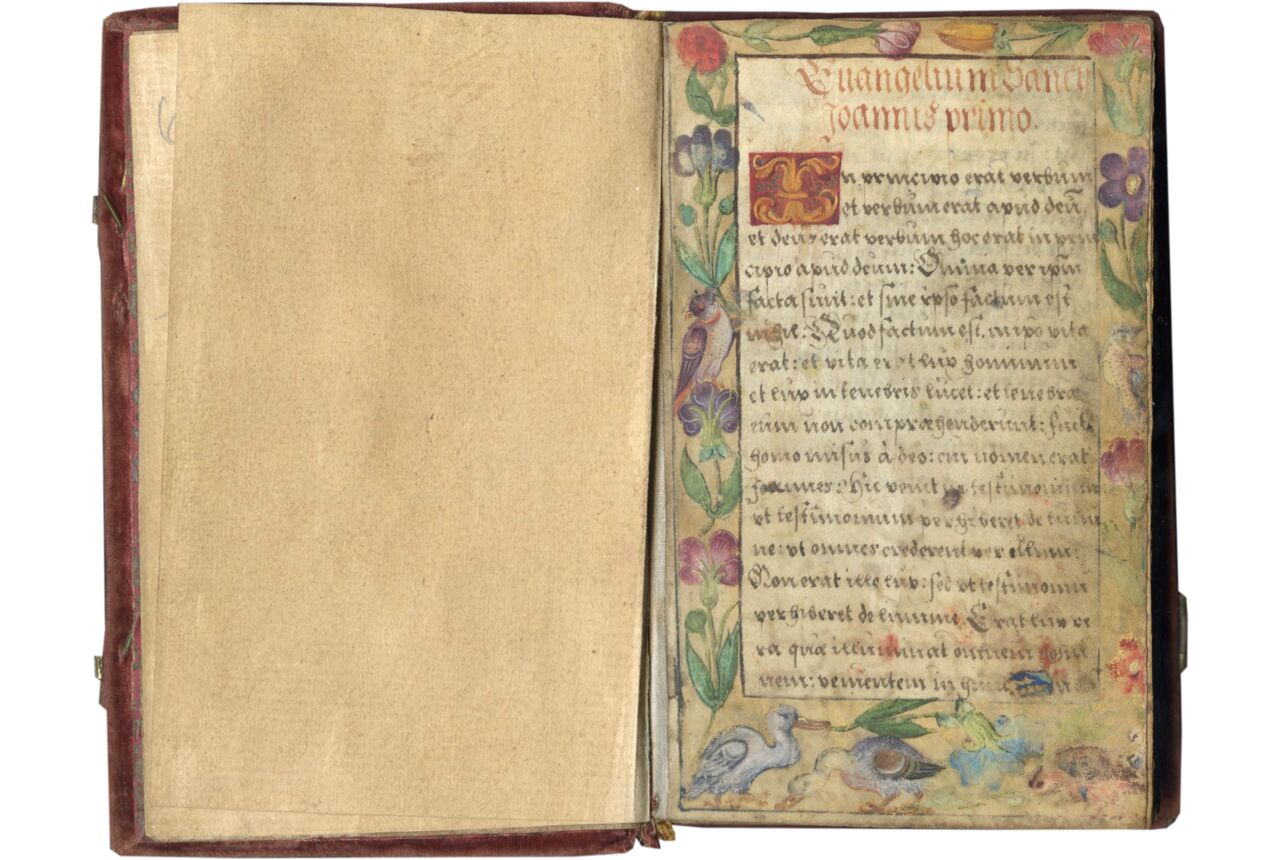 6
Euangelium Sancti
Joannis primo.
In principio erat verbum
et verbum erat apud deū,
et deus erat verbum hoc erat in prin
cipio apud deum: Omnia per ipsū
facta sunt: et sine ipso factum est
nihil: Quod factum est, in ipso vita
erat: et vita erat lux hominum
et lux in tenebris lucet: et tenebræ
eum non compræhenderunt: fuit
homo missus à deo: cui nomen erat
Joannes: Hic venit in testimonium
vt testimonium perhiberet de lumi
ne: vt omnes crederent per illum:
Non erat ille lux: sed vt testimoniū
perhiberet de lumine, Erat lux ve
ra quæ illuminat omnem homi
nem: venientem in hunc